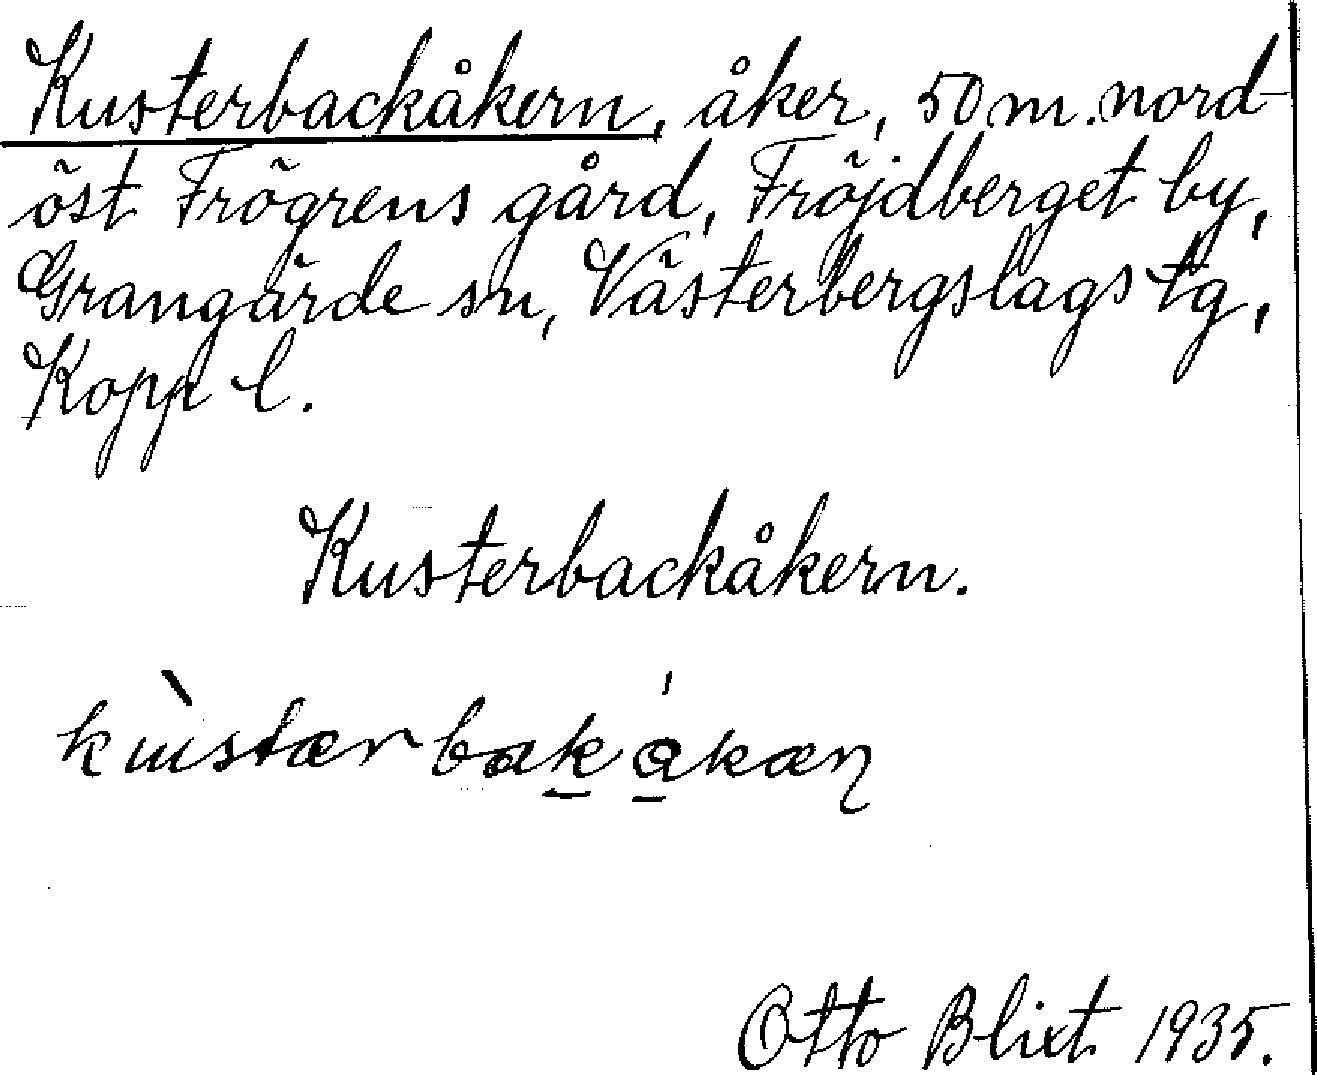 Kusterbackåkern, åker, 50 m. nord-
öst Frögrens gård, Fröjdberget by,
Grangärde sn, Västerbergslags tg,
Kopp l.
Kusterbackåkern.
kùstærbakåkæɳ
Otto Blixt 1935.